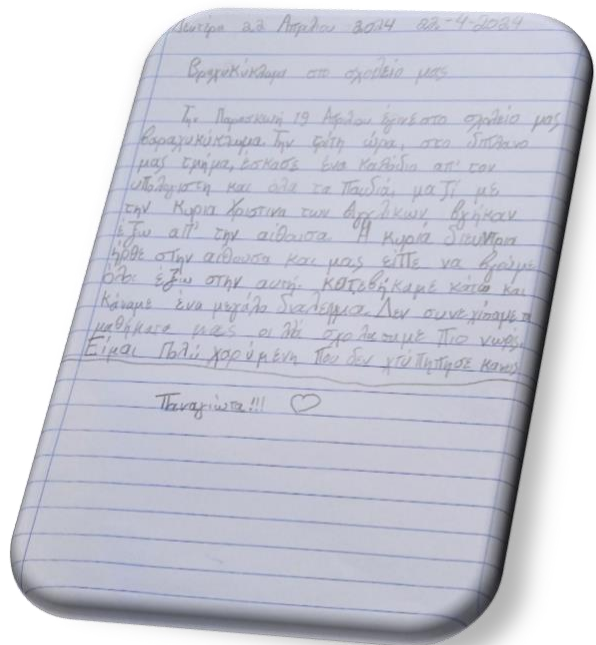 Δευτέρα 22 Απριλίου 2024 22-4-2024
Βραχυκύκλωμα στο σχολείο μας
Την Παρασκευή 19 Απριλίου έγινε στο σχολείο μας
βαραχυκύκτωμα. Την τρίτη ώρα, στο διπλανο
μας τμήμα, έσκασε ένα καλώδιο απ' τον
υπολογιστη και όλα τα παιδιά, μαζί με
την Κυρια Χριστινα των Αγγλικων βγήκαν
έξω απ' την αίθουσα. Η κυρία διευντρια
ήρθε στην αίθουσα και μας είπε να βγούμε
όλοι έξω στην αυλή. κατεβήκαμε κάτω και
κάναμε ένα μεγάλο διαλειμμα. Δεν συνεχίσαμε τα
μαθήματα μας σχολασαμε πιο νωρίς.
Είμαι πολύ χαρούμενη που δεν χτύπησε κανείς
Παναγιώτα!!! ♡